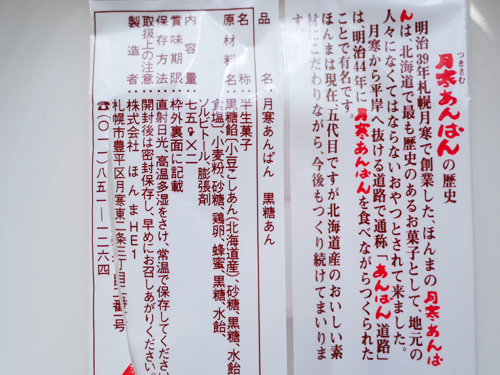 つきさむ
月寒あんぱんの歴史
明治39年札幌月寒で創業した、ほんまの月寒あんぱ
んは、北海道で最も歴史のあるお菓子として、地元の
人々になくてはならないおやつとされて来ました。
月寒から平岸へ抜ける道路で通称「あんぱん道路」
は、明治44年に月寒あんぱんを食べながらつくられた
ことで有名です。
ほんまは現在、五代目ですが北海道産のおいしい素
材にこだわりながら、今後もつくり続けてまいりま
品名 月寒あんぱん 黒糖あん
名称 半生菓子
原材料名 黒糖餡(小豆こしあん(北海道産)、砂糖、黒糖、水飴
食塩)、小麦粉、砂糖、鶏卵、蜂蜜、黒糖、水飴、
ソルビトール、膨張剤
内容量:七五g×二
賞味期限:枠外裏面に記載
保存方法:直射日光、高温多湿をさけ、常温で保存してください。
取扱上の注意:開封後は密封保存し、早めにお召しあがりください。
製造者:株式会社 ほんまHE1
札幌市豊平区月寒東二条三丁目二番一号
☎(〇一一)八五一-一二六四